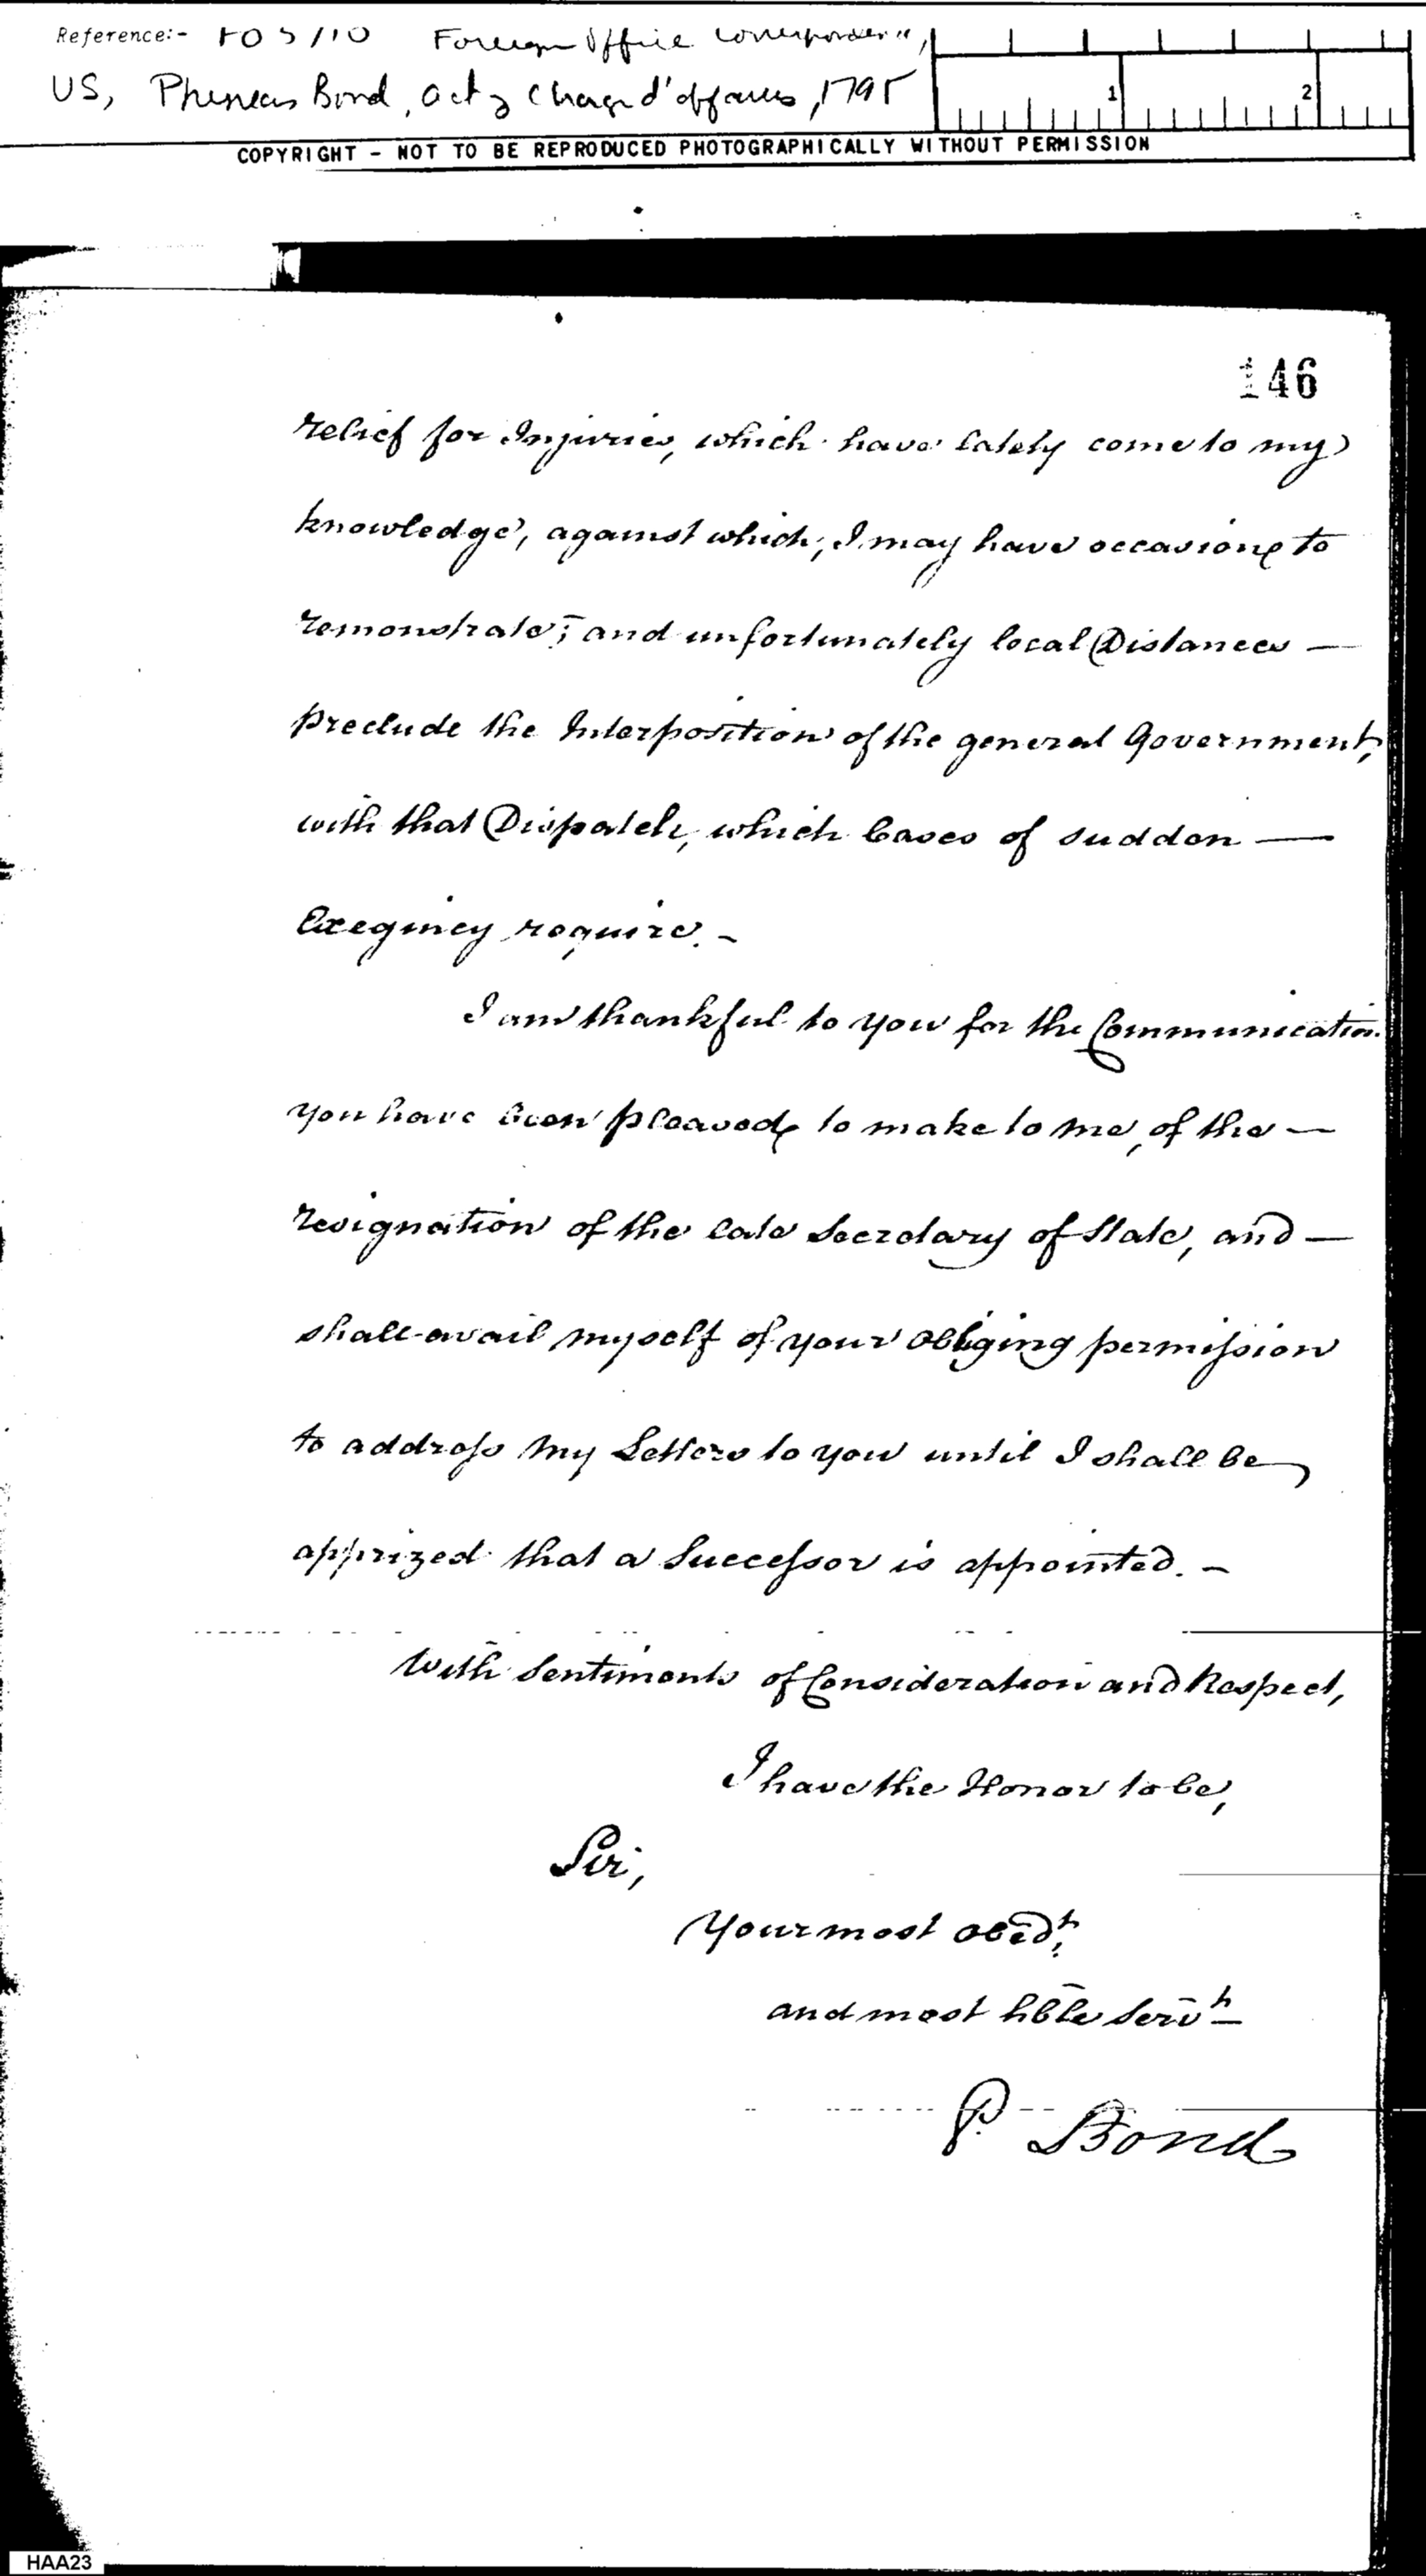 Reference:- FO 5/10 Foreign Office Correspondence,
US, Phineas Bond, actg Chargé d'affaires, 1795
1 2
COPYRIGHT - NOT TO BE REPRODUCED PHOTOGRAPHICALLY WITHOUT PERMISSION
146
relief for Injuries, which have lately come to my
knowledge, against which, I may have occasion to
remonstrate; and unfortunately local Distances —
preclude the Interposition of the general Government,
with that Dispatch, which Cases of sudden —
Exeginey require. -
I am thankful to you for the Communication
you have been pleased to make to me, of the —
resignation of the late Secretary of State, and —
shall avail myself of your obliging permission
to address my Letters to you until I shall be
apprized that a Successor is appointed. -
With Sentiments of Consideration and Respect,
I have the Honor to be,
Sir,
Your most obedt,
and most hble servt
P. Bond
HAA23